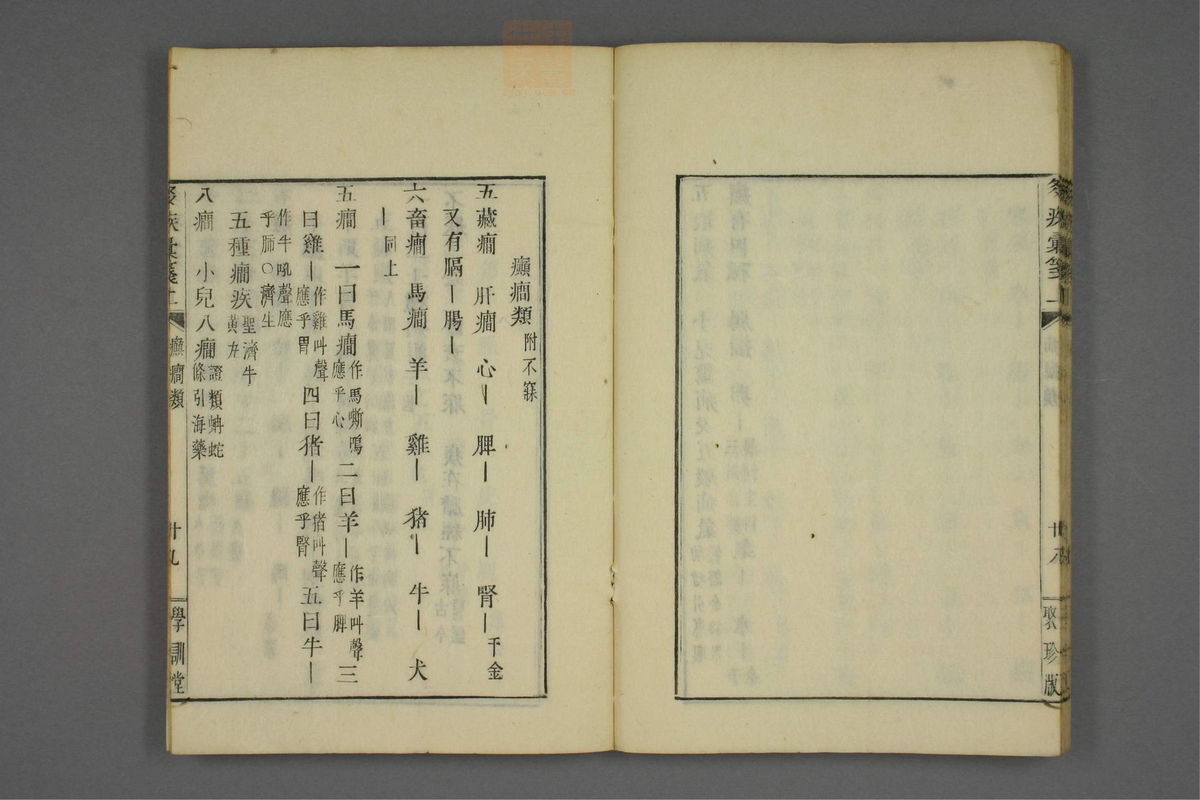 聚珍版
癲癇類附不寐
五藏癇　肝癇　心〡　脾〡　肺〡　腎〡千金
又有膈〡腸〡
六畜癇　馬癇　羊〡　雞〡　猪〡　牛〡　犬
〡同上
五癇　一曰馬癇作馬嘶鳴應乎心二曰羊〡作羊叫聲應乎脾三
曰雞〡作雞叫聲應乎胃四曰猪〡作猪叫聲應乎腎五曰牛〡
作牛吼聲應乎肺○濟生
五種癇疾聖濟牛黃丸
八癇　小兒八癇證類蚺蛇條引海藥
疾彙箋二　癲癇類　廿九　學訓堂